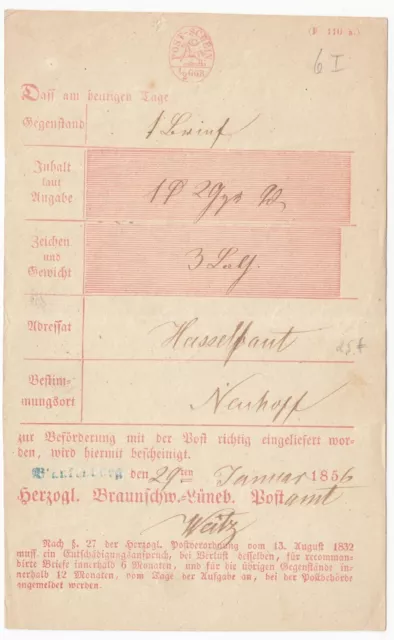 POST-SCHEIN
(F. 110 a.)
6 I
Daſſ am heutigen Tage
Gegenstand
1 Brief
Inhalt
laut
Angabe
Zeichen
und
Gewicht
Adressat
Hasselbaut
Bestim-
mungsort
Neuhoff
zur Beförderung mit der Post richtig eingeliefert wor-
den, wird hiermit bescheinigt.
den 29ten Januar 1856
Herzogl. Braunschw.-Lüneb. Postamt
Weitz
Nach §. 27 der Herzogl. Postverordnung vom 13. August 1832
muss ein Entschädigungsanspruch, bei Verlust desselben, für recomman-
dirte Briefe innerhalb 6 Monaten, und für die übrigen Gegenstände in-
nerhalb 12 Monaten, vom Tage der Aufgabe an, bei der Postbehörde
angemeldet werden.